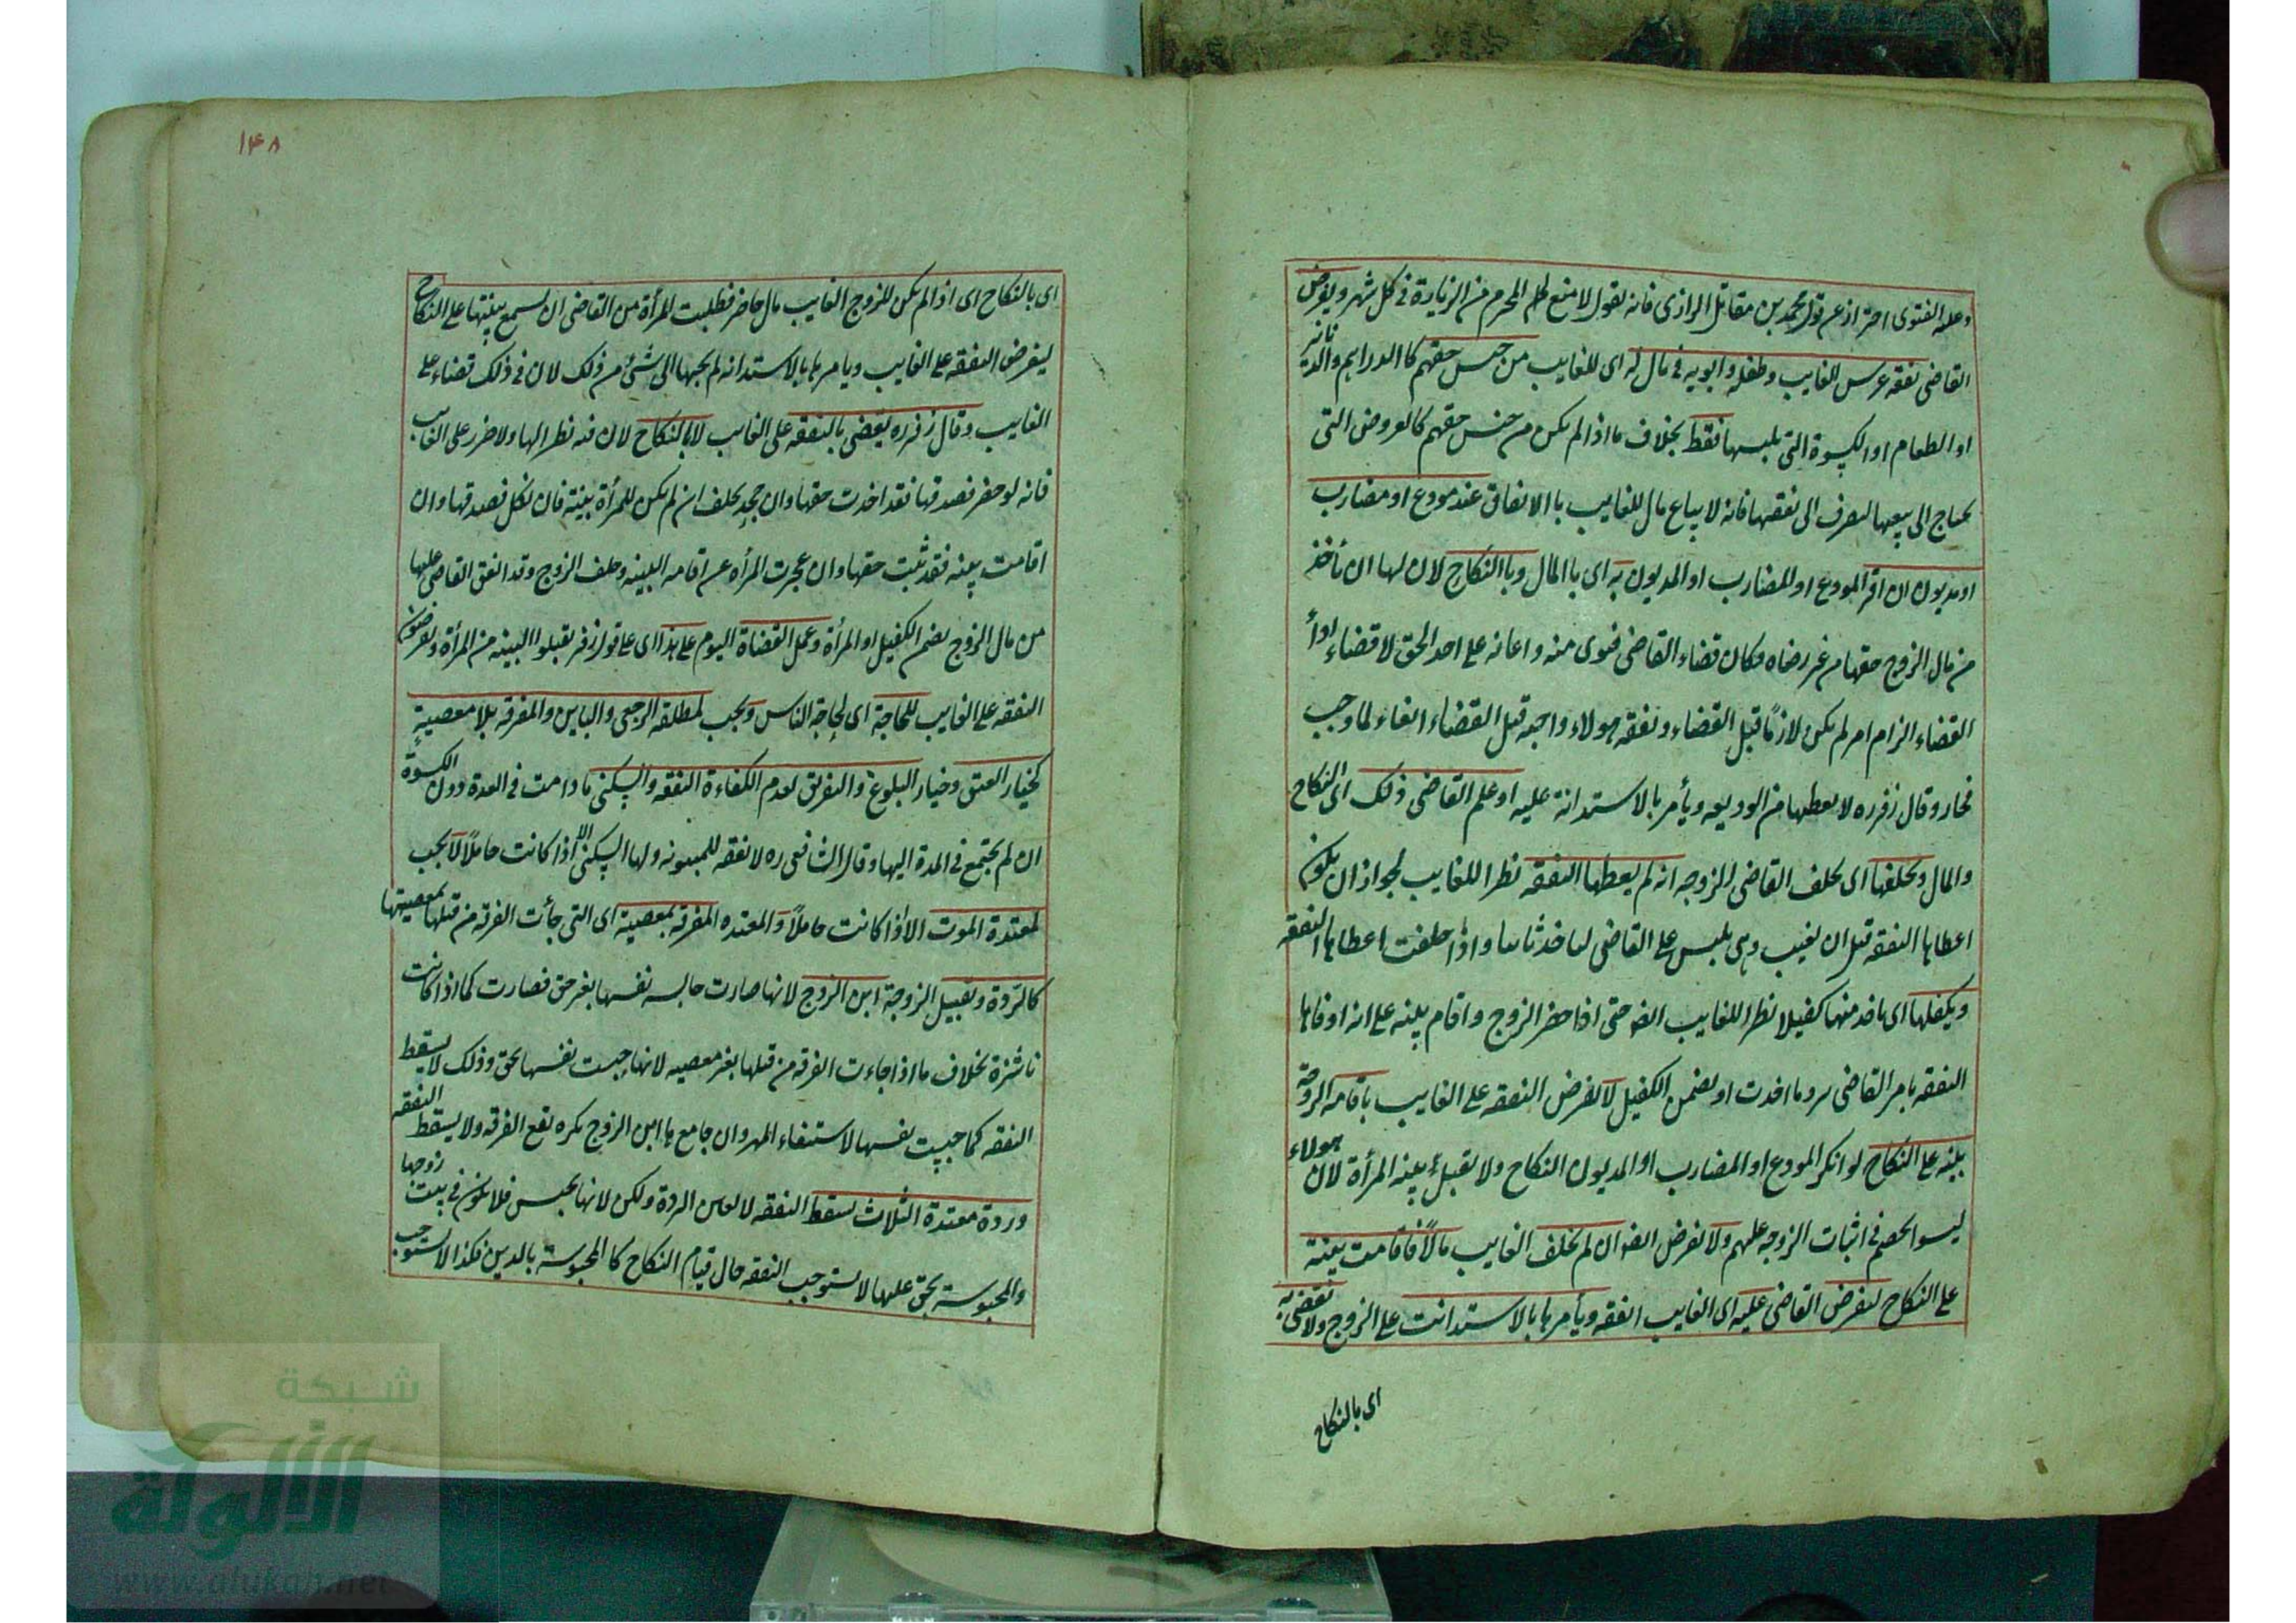 وعليه الفتوى احتراز عن قول محمد بن مقاتل الرازى فانه يقول لا منع لها المحرم من الزيارة فى كل شهر ويفرض
القاضى نفقه عرس الغايب وطفله وابويه فى مال له اى للغايب من جنس حقهم كا الدراهم والدنانير
او الطعام او الكسوة التى يلبسها فقط بخلاف ما اذا لم يكن من جنس حقهم كالعروض التى
يحتاج الى بيعها ليصرف الى نفقتها فانه لا يباع مال للغايب با الاتفاق عند مودع او مضارب
او مديون ان اقر المودع او المضارب او المديون به اى با المال وبا النكاح لان لها ان تأخذ
من مال الزوج حقها من غير رضاه وكان قضاء القاضى فتوى منه واعانه على اخذ الحق لا قضاء اذ
القضاء الزام امر لم يكن لازمًا قبل القضاء ونفقه هولاء واجبه قبل القضاء ايفاء لما وجب
فجاز وقال زفر ره لا يعطيها من الوديعه ويأمر بالاستدانة عليه او علم القاضى ذلك اى النكاح
والمال ويحلفها اى يحلف القاضى الزوجه انه لم يعطها النفقه نظرا للغايب لجواز ان يكون
اعطاها النفقه قبل ان يغيب وهى يلبس على القاضى لتأخذ ثانيا واذا حلفت اعطاها النفقه
ويكفلها اى ياخذ منها كفيلا نظرا للغايب ايضا حتى اذا حضر الزوج واقام بينه على انه اوفاها
النفقه يامر القاضى برد ما اخذت او يضمن الكفيل لا يفرض النفقه على الغايب باقامه الزوجة
بينه على النكاح لو انكر المودع او المضارب او المديون النكاح ولا تقبل بينه المرأة لان هولاء
ليسوا بخصم فى اثبات الزوجه عليهم ولا يفرض ايضا ان لم يخلف الغايب مالًا فاقامت بينة
على النكاح ليفرض القاضى عليه اى الغايب النفقه ويأمرها بالاستدانت على الزوج ولا يقضى به
اى بالنكاح
١٤٨
اى بالنكاح اى اذا لم يكن للزوج الغايب مال حاضر فطلبت المرأة من القاضى ان يسمع بينتها على النكاح
ليفرض النفقه على الغايب ويامرها بالاستدانه لم يجبها الى شئ من ذلك لان فى ذلك قضاء على
الغايب وقال زفر ره يقضى بالنفقه على الغايب لا بالنكاح لان فيه نظرا لها ولا ضرر على الغايب
فانه لو حضر فصدقها فقد اخذت حقها وان جحد يحلف ان لم يكن للمرأة بينة فان نكل فصدقها وان
اقامت بينه فقد ثبت حقها وان عجزت المرأه عن اقامه البينه وحلف الزوج وقد انفق القاضى عليها
من مال الزوج يضمن الكفيل او المرأة وعمل القضاة اليوم على هذا اى على قول زفر يقبلوا البينه من المرأة ويفرضون
النفقه على الغايب للحاجة اى لحاجة الناس ويجب لمطلقه الرجعى والباين والمفرقه بلا معصيةٍ
كخيار العتق وخيار البلوغ والتفريق لعدم الكفاءة النفقه والسكنى ما دامت فى العدة دون الكسوة
ان لم يجتمع فى المدة اليها وقال الشافعى ره لا نفقه للمبتوته ولها السكنى الا اذا كانت حاملًا لا يجب
لمعتدة الموت الا اذا كانت حاملًا والمعتده المفرقه بمعصية اى التى جأت الفرقه من قبلها بمعصيتها
كالردة وتقبيل الزوجة ابن الزوج لانها صارت حابسه نفسها بغير حق فصارت كما اذا كانت
ناشزة بخلاف ما اذا جاءت الفرقه من قبلها بغير معصيه لانها حبست نفسها بحق وذلك لا يسقط
النفقه كما حبست نفسها لاستيفاء المهر وان جامعها ابن الزوج مكره تقع الفرقه ولا يسقط النفقه
وردة معتدة الثلاث يسقط النفقه لا لعين الردة ولكن لانها تحبس فلا تكون فى بيت زوجها
والمحبوسة بحق عليها لا يستوجب النفقه حال قيام النكاح كا المحبوسة بالدين فكذا لا يستوجب
شبكة
الألوكة
www.alukah.net